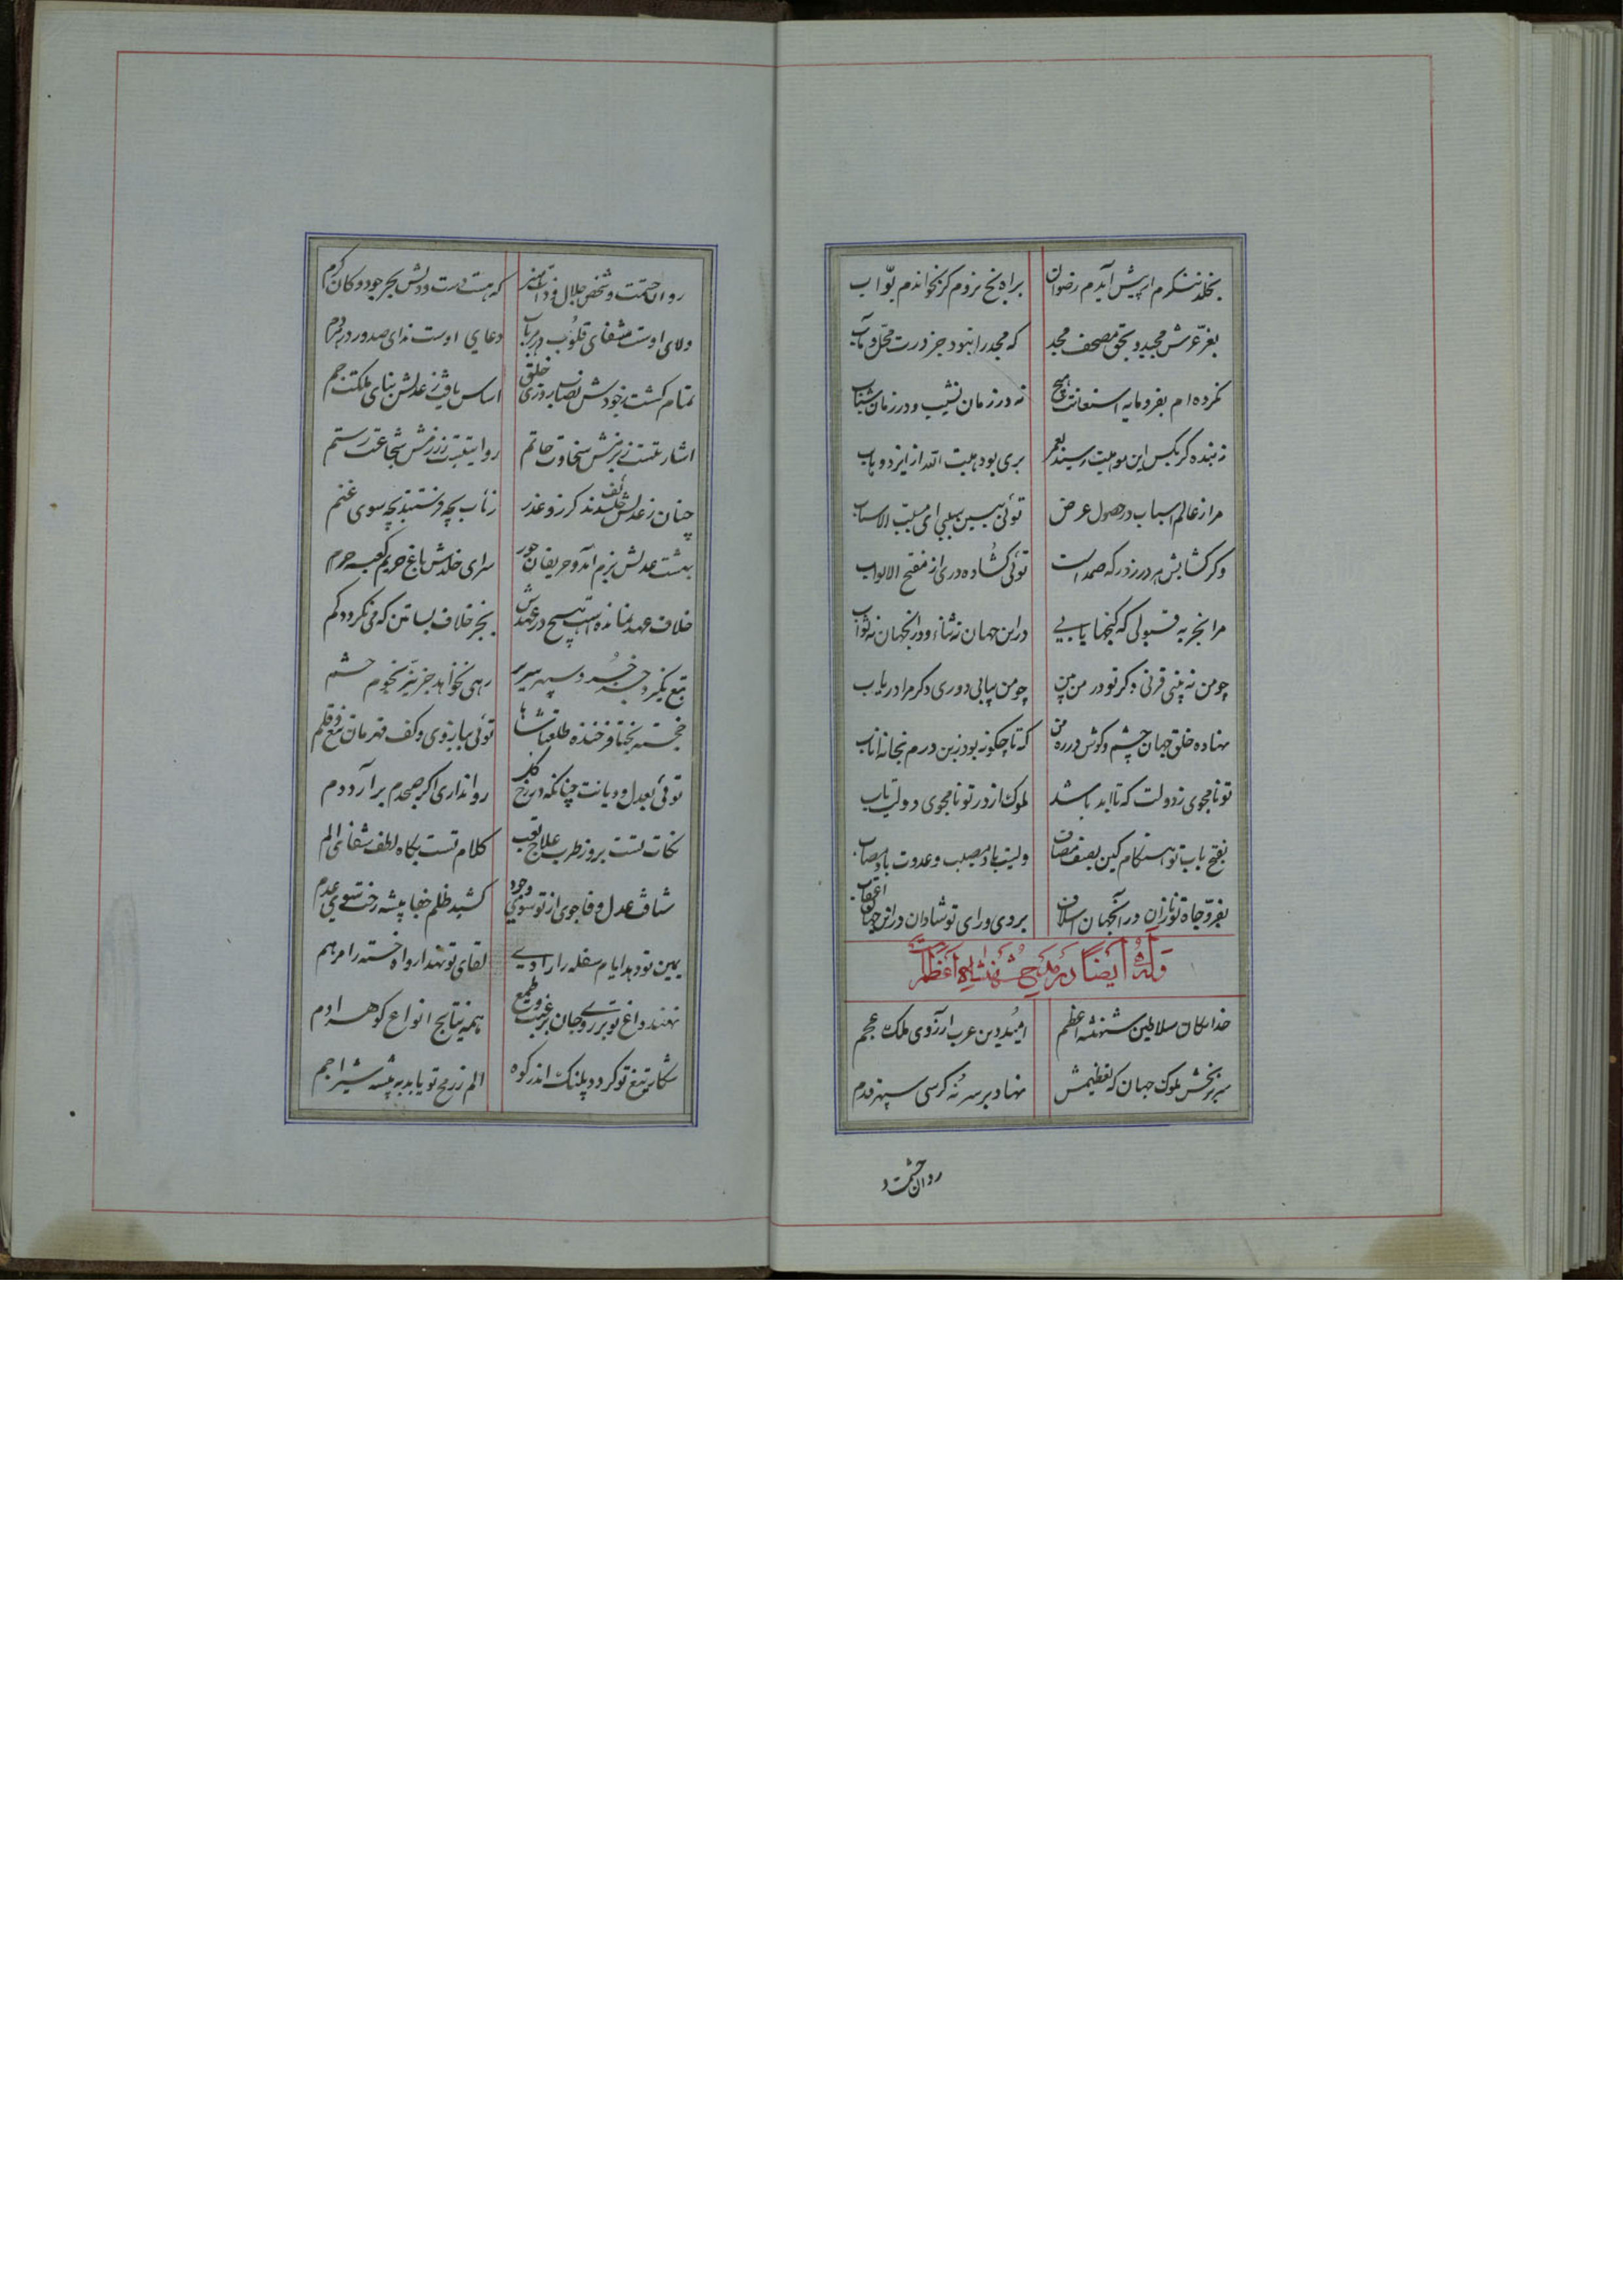 بخلد ننگرم ار پیش آیدم رضوان براه نخ نروم گر نخواندم بوّاب
بعزّ عرش مجید و بحق مصحف مجد که مجد را نبود جز درت محل و مآب
نکرده ام بفرومایه استعانت هیچ نه در زمان نشیب و نه در زمان شتاب
نه بنده گر بکس این موهبت رسید بعمر بری بود هبت الله از ایزد وهاب
مرا ز عالم اسباب در حصول عرض توئی بهین سببی ای مسبّب الاسباب
وگر گشایش هر در ز درگه صمد است توئی گشاده دری از مفتح الابواب
مرا بخر به قبولی که گنجها یابی در این جهان ز ثناء و در آنجهان ز ثواب
چو من نه بینی قرنی دگر تو در من بین چو من نیابی دوری دگر مرا دریاب
نهاده خلق جهان چشم و گوش در ره من که تا چگونه بود زین درم بخانه ایاب
تو نامجوی ز دولت که تا ابد باشد ملوک از در تو نامجوی دولت یاب
بفتح باب تو هنگام کین بصف مصاف ولیت باد مصیب و عدوت باد مصاب
بفرّ و جاه تو نازان در آنجهان اسلاف بروی و رای تو شادان در این جهان اعقاب
وَلَهُ ایضاً در مدح شهنشاه اعظم
خدایگان سلاطین شهنشه اعظم امید دین عرب آرزوی ملک عجم
سریر بخش ملوک جهان که تعظیمش نهاد بر سر نه کرسی سپهر قدم
روان حشمت و
روان حشمت و شخص جلال و ذات هنر که هست دست و دلش بحر جود و کان کرم
ولای اوست شفای قلوب در هر باب دعای اوست ندای صدور در هر دم
تمام گشت ز جودش نصاب روزی خلق اساس یافت ز عدلش بنای ملکت جم
اشارتیست ز بزمش سخاوت حاتم روایتیست ز رزمش شجاعت رستم
چنان ز عدلش خائف شدند گرز و غدر ز ناب بچه فرستند بچه سوی غنم
بهشت عدلش بزم آمد و حریفان حور سرای خلدش باغ حریم کعبه حرم
خلاف عهد نمانده است هیچ در عهدش بجز خلاف بساتین که می نگردد کم
تیغ بگیرد خسرو سپهر سریر رهی نخواهد جز نیزه نجوم حشم
خجسته بختا فرخنده طلعتا شاها توئی ببازوی و کف قهرمان تیغ و قلم
توئی بعدل و دیانت چنانکه در رخ گل روا نداری اگر صبحدم برآرد دم
نکات تست بروز طرب علاج تعب کلام تست بگاه لطف شفای الم
شتافت عدل وفا جوی از تو سوی وجود کشید ظلم جفا پیشه رخت سوی عدم
یمین تو دهد ایام سفله را رادی لقای تو نهد ارواح خسته را مرهم
نهند داغ تو بر روی جان برغبت و طمع همه نتایج انواع گوهر آدم
شکار تیغ تو گردد پلنگ اندر کوه الم ز رمح تو یابد به بیشه شیر اجم